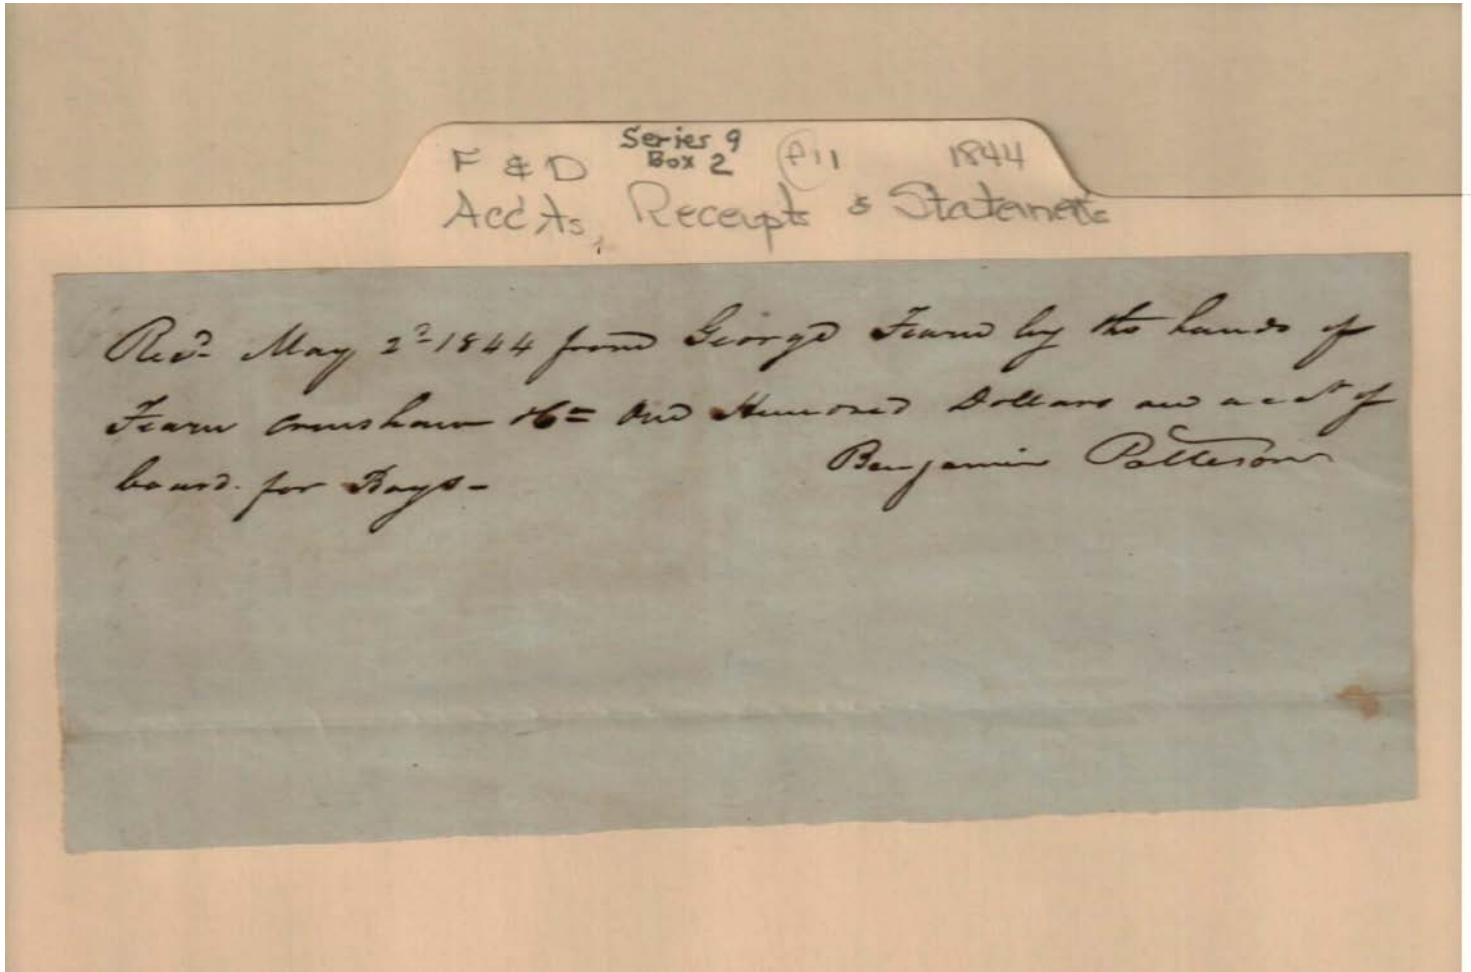 Series 9
F & D Box 2 F11 1844
Accts, Receipts & Statements
Recd. May 2d 1844 from George Fearn by the hands of
Fearn Crenshaw &Co One Hundred Dollars on acct of
board for Boys -
Benjamin Patteson